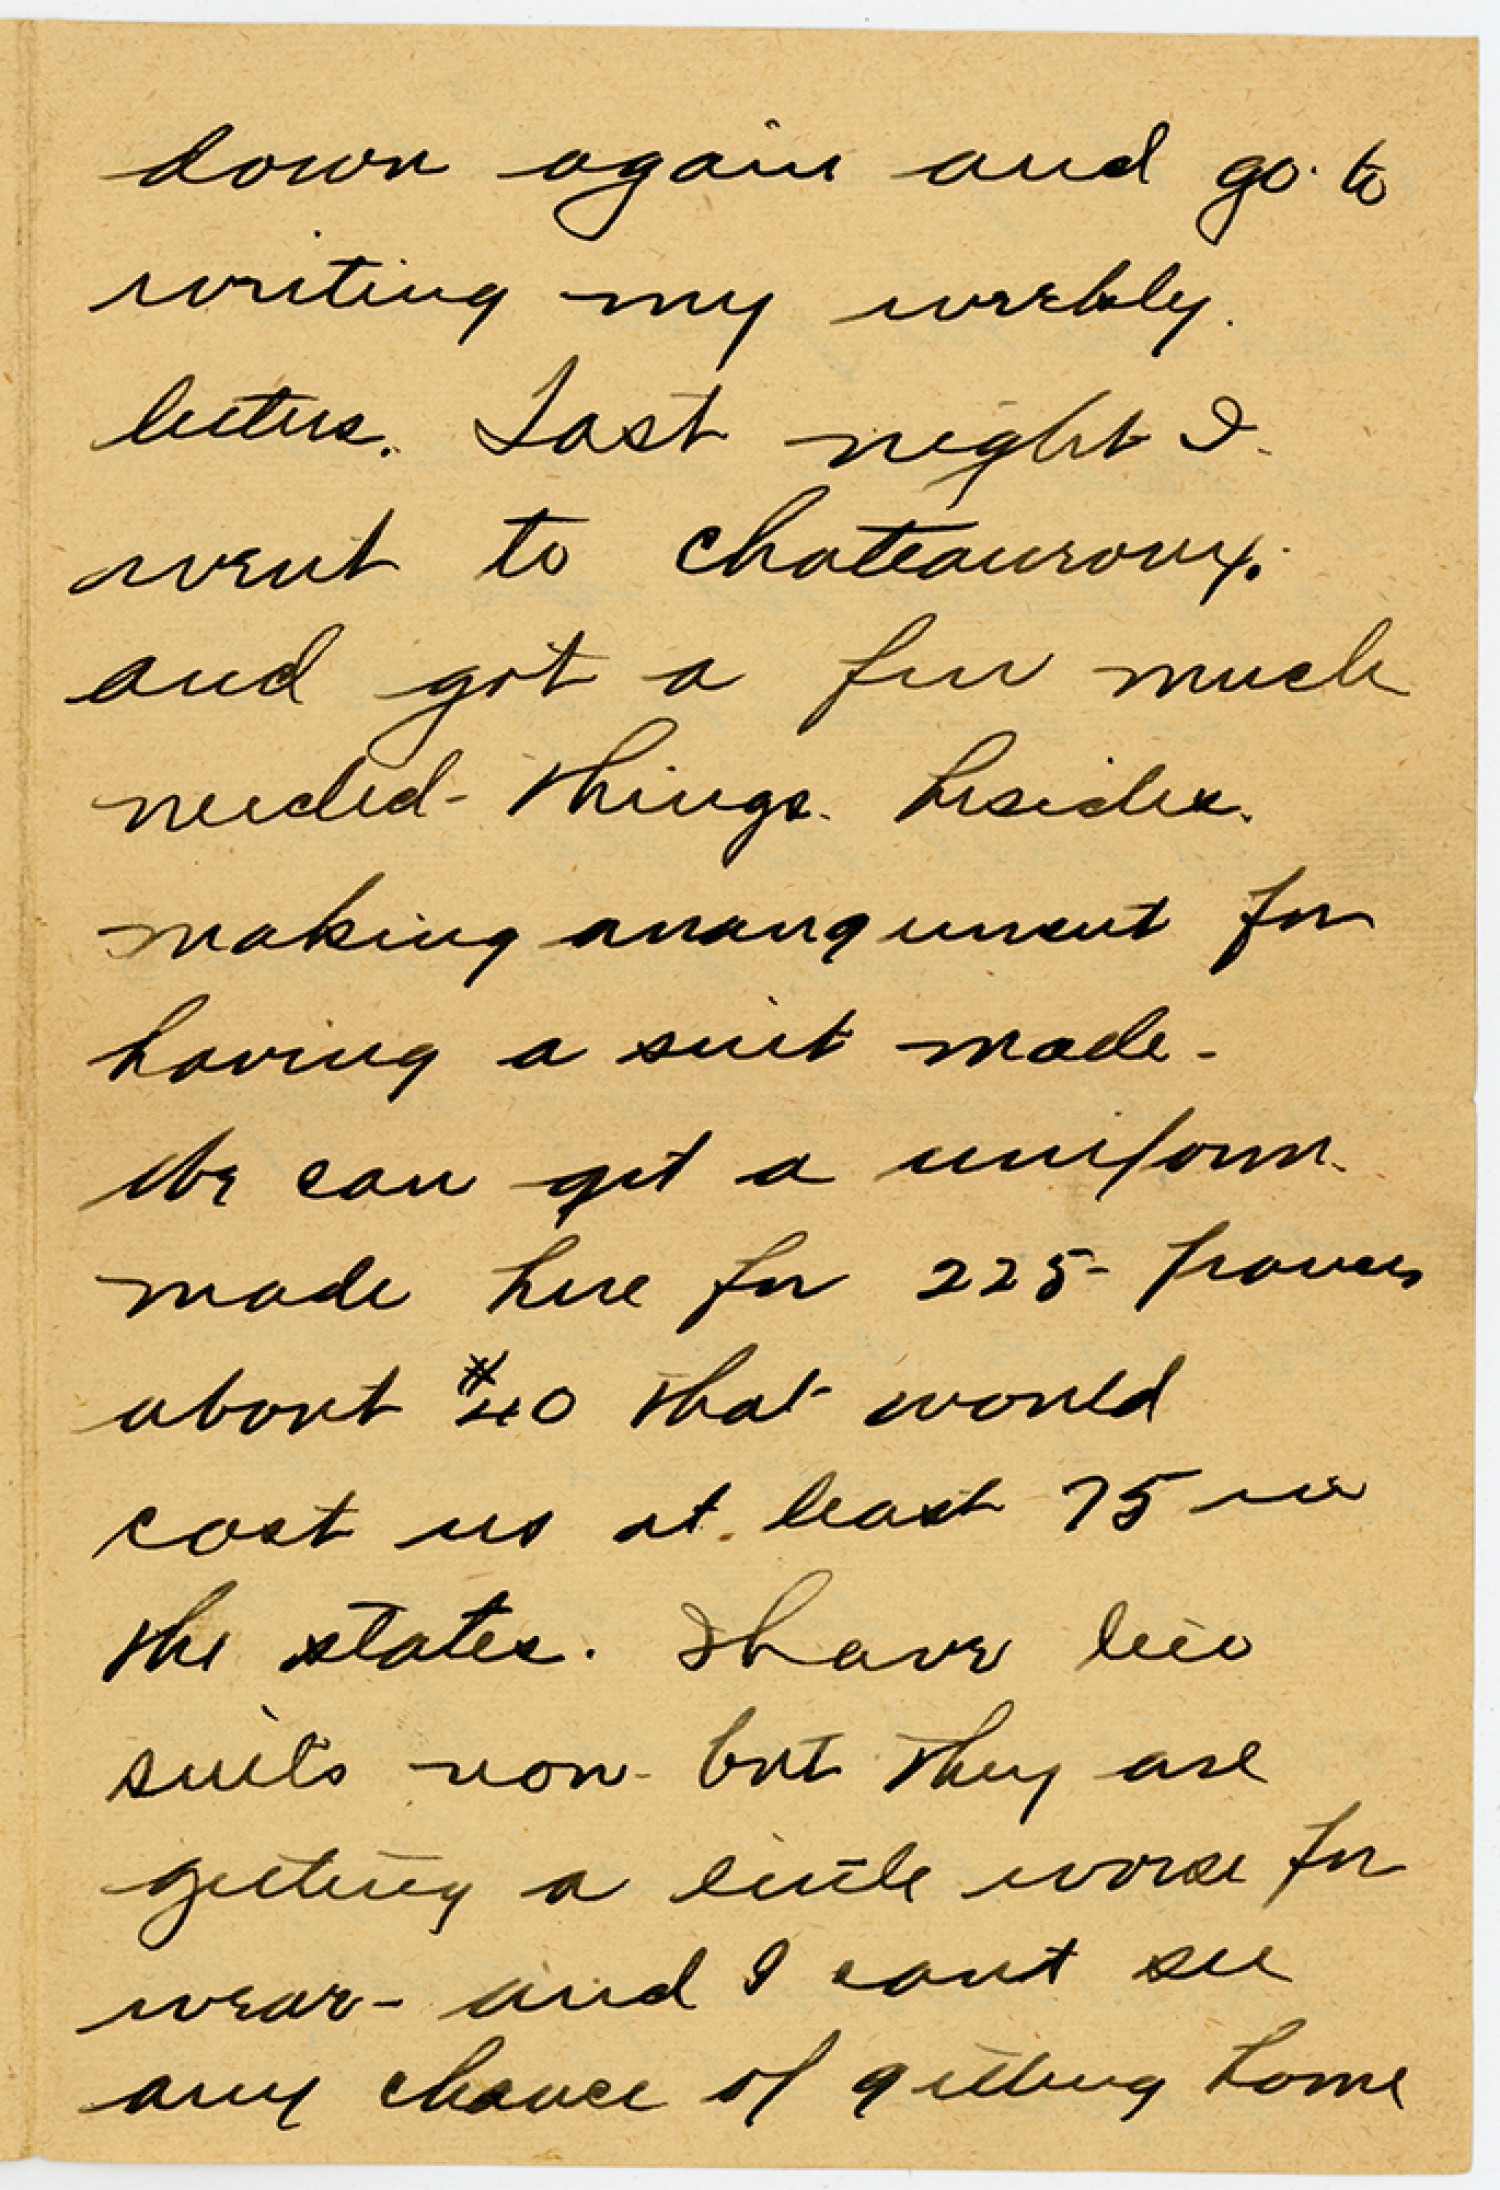 down again and go to
writing my weekly
letters. Last night I
went to Chateauroux.
and got a few much
needed things. besides.
making arrangement for
having a suit made -
We can get a uniform.
made here for 225 - francs
about $40 that would
cost us at least 75 in
the states. I have two
suits now but they are
getting a little worse for
wear - and I cant see
any chance of getting home